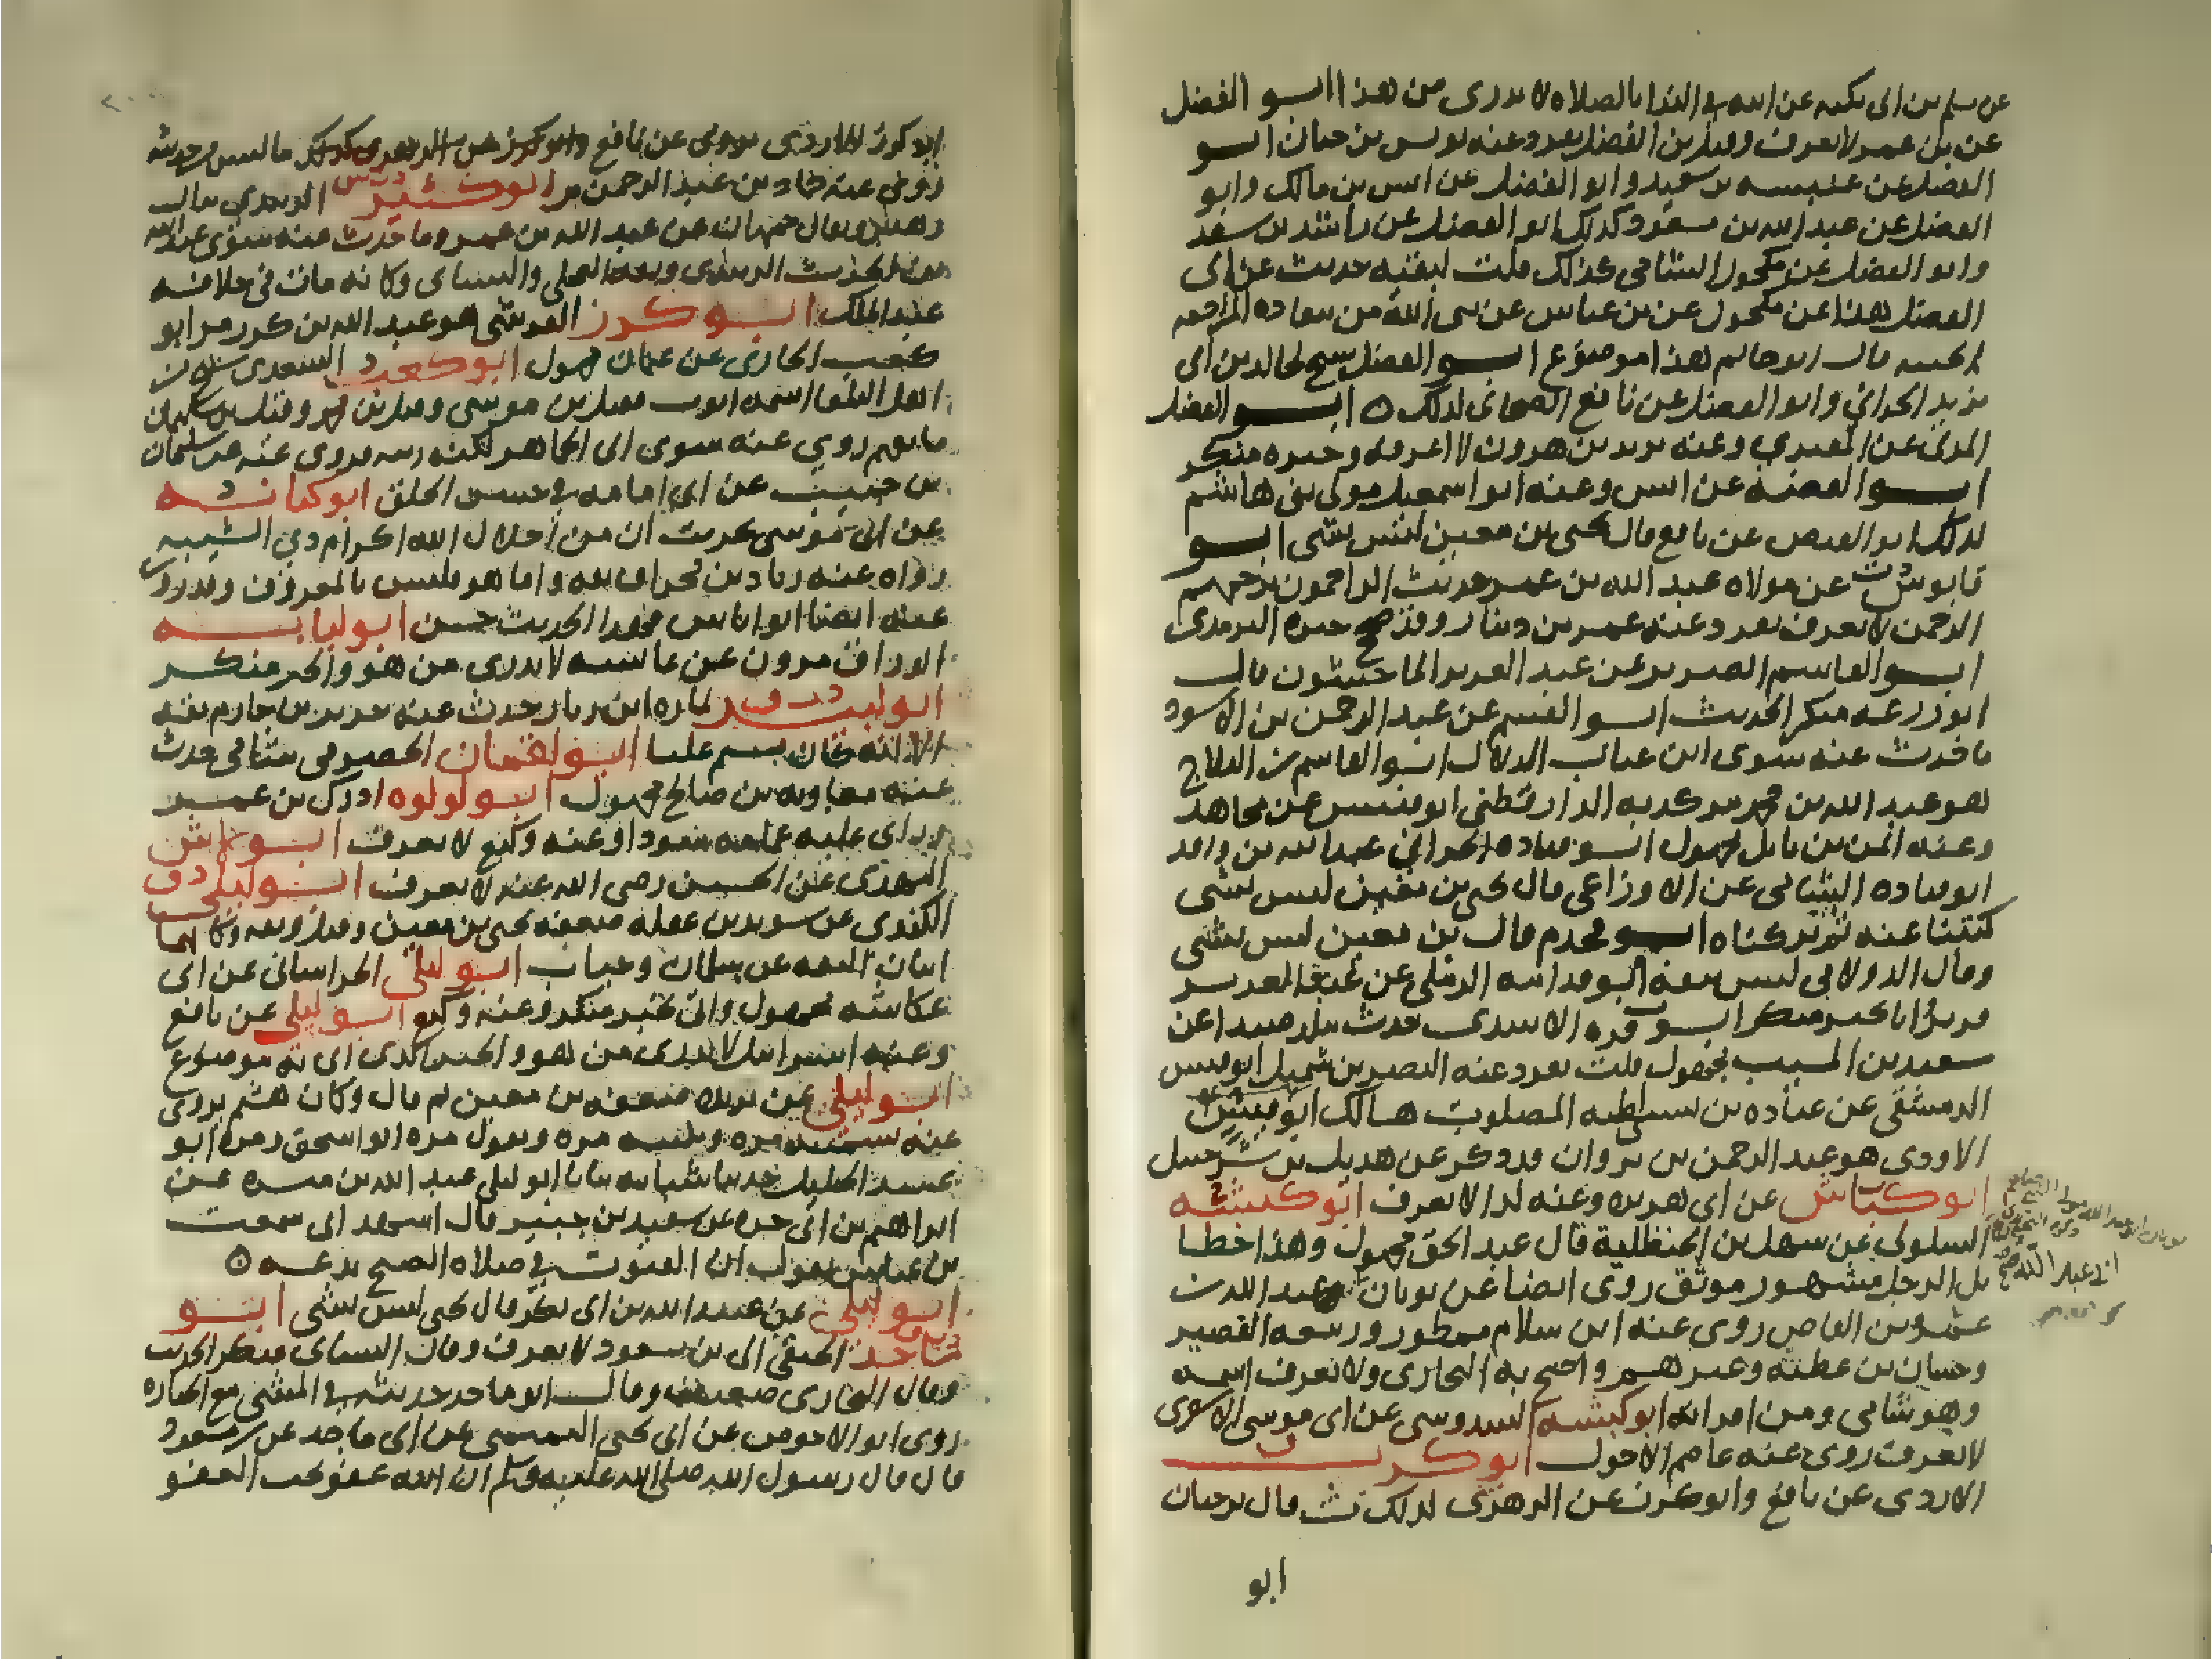 عن سلم بن ابى بكره عن ابيه فى الندا بالصلاه لا يدرى من هذا ابو الفضل
عن بن عمر لا يعرف وقيل بن الفضل تفرد عنه يونس بن حباب ابو
الفضل عن عنبسه بن سعيد وابو الفضل عن انس بن مالك وابو
الفضل عن عبد الله بن مسعود كذلك ابو الفضل عن راشد بن سعد
وابو الفضل عن مكحول الشامى كذلك قلت لبقيه حديث عن ابى
الفضل هذا عن مكحول عن بن عباس عن نبى الله من سعاده المرء خفه
لحيته قال ابو حاتم هذا موضوع ابو الفضل شيخ لخالد بن ابى
يزيد الحرانى وابو الفضل عن نافع الصحابى كذلك ابو الفضل
المدنى عن المقبرى وعنه يزيد بن هرون لا اعرفه وخبره منكر
ابو الفضه عن انس وعنه ابو اسمعيل مولى بنى هاشم
كذلك ابو الفيض عن نافع قال يحيى بن معين ليس بشى ابو
قابوس د ت عن مولاه عبد الله بن عمر حديث الراحمون يرحمهم
الرحمن لا يعرف تفرد عنه عمر بن دينار وقد صحح خبره الترمذى
ابو القاسم الضرير عن عبد العزيز الماجشون قال
ابو زرعه منكر الحديث ابو القسم عن عبد الرحمن بن الاسود
ما حدث عنه سوى ابن عياب الدلال ابو القاسم بن الثلاج
هو عبد الله بن محمد مر كذبه الدارقطنى ابو قيس عن مجاهد
وعنه ايمن بن نابل مجهول ابو قتاده الحرانى عبد الله بن واقد
ابو قتاده الشامى عن الاوزاعى قال يحيى بن معين ليس بشى
كتبنا عنه ثم تركناه ابو محذم قال بن معين ليس بشى
وقال الدولابى ليس بثقه ابو قدامه الرملى عن عبد العزيز
قرير اتا بخبر منكر ابو قره الاسدى حدث بيلد صيدا عن
سعيد بن المسيب مجهول قلت تفرد عنه النضر بن شميل ابو قيس
الدمشقى عن عباده بن نسى لعله المصلوب هالك ابو قيس
الاودى هو عبد الرحمن بن ثروان قد ذكر عن هذيل بن شرحبيل
ابو كباش عن ابى هريره وعنه كدا لا يعرف ابو كبشه
السلولى عن سهل بن الحنظلية قال عبد الحق مجهول وهذا خطا
بل الرجل مشهور موثق روى ايضا عن ثوبان وعبد الله بن
عمرو بن العاص روى عنه ابن سلام ممطور وربيعه القصير
وحسان بن عطيه وغيرهم واحتج به البخارى ولا يعرف اسمه
وهو شامى ومن اقرانه ابو كبشه السدوسى عن ابى موسى الاشعرى
لا يعرف روى عنه عاصم الاحول ابو كرب ق
الازدى عن نافع وابو كرب عن الزهرى كذلك ت قال بن حبان
ابو
ابو كرز الازدى يروى عن نافع
روى عنه حماد بن عبد الرحمن مر ابو كثير د ت س الزبيدى قال
زهير ويقال جمهان عن عبد الله بن عمرو ما حدث عنه سوى عبد الله
بن الحارث الزبيدى وثقه العجلى والنسائى وكانه مات فى خلافه
عبد الملك ابو كرز القرشى هو عبد الله بن كرز مر ابو
كعب الحارثى عن عثمان مجهول ابو كعب د السعدى
البلقا اسمه ايوب قيل بن موسى وقيل بن محمد وقيل بن سليمان
ما علم روى عنه سوى ابى الجماهر لكنه وثقه يروى عنه عن سليمان
بن حبيب عن ابى امامه فى حسن الخلق ابو كنانه د
عن ابى موسى بحديث ان من اجلال الله اكرام ذى الشيبه
رواه عنه زياد بن مخراق ثقه واما هو فليس بالمعروف وقد روى
عنه ايضا ابو اياس فهذا الحديث حسن ابو لبابه
الوراق مروان عن عائشه لا يدرى من هو والخبر منكر
ابو لبيد د ت ق لمازه ابن زبار حدث عنه جرير بن حازم ثقه
الا انه كان يشتم عليا ابو لقمان الحضرمى شامى حدث
عنه معاويه بن صالح مجهول ابو لولوه ادرك بن عمر
وراى عليه عمامه سودا وعنه وكيع لا يعرف ابو لاس
النهدى عن الحسين رضى الله عنه لا يعرف ابو ليلى د ق
الكندى عن سويد بن غفله ضعفه يحيى بن معين وقيل وثقه وكانهما
اثنان الثقه عن سلمان وخباب ابو ليلى الخراسانى عن ابى
عكاشه مجهول واتى بخبر منكر وعنه وكيع ابو ليلى عن نافع
وعنه اسرائيل لا يدرى من هو والخبر الذى اتى به موضوع
ابو ليلى عن بريده ضعفه بن معين ثم قال وكان هشيم يروى
عنه يسميه مره ويكنيه مره ويقول مره ابو اسحق ومره ابو
عبد الجليل حدثنا شبابه ثنا ابو ليلى عبد الله بن ميسره عن
ابراهيم بن ابى حره عن سعيد بن جبير قال اشهد انى سمعت
بن عباس يقول ان القنوت فى صلاه الصبح بدعه
ابو ليلى عن عبد الله بن ابى بكر قال يحيى ليس بشى ابو
ماجد د ت ق الحنفى الى بن مسعود لا يعرف وقال النسائى منكر الحديث
وقال البخارى ضعيف وقال ابو ماجد حديثه فى المشى مع الجنازه
روى ابو الاحوص عن ابى يحيى التميمى عن ابى ماجد عن بن مسعود
قال قال رسول الله صلى الله عليه وسلم ان الله عفو يحب العفو